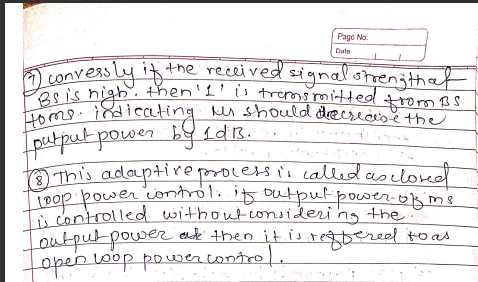 Page No.
Date
⑦ conversly if the received signal strength at
BS is high. then '1' is transmitted from BS
to ms. indicating MS should decrease the
output power by 1dB.
⑧ This adaptive process is called as closed
loop power control. if output power of ms
is controlled without considering the
output power at then it is reffered to as
open loop power control.